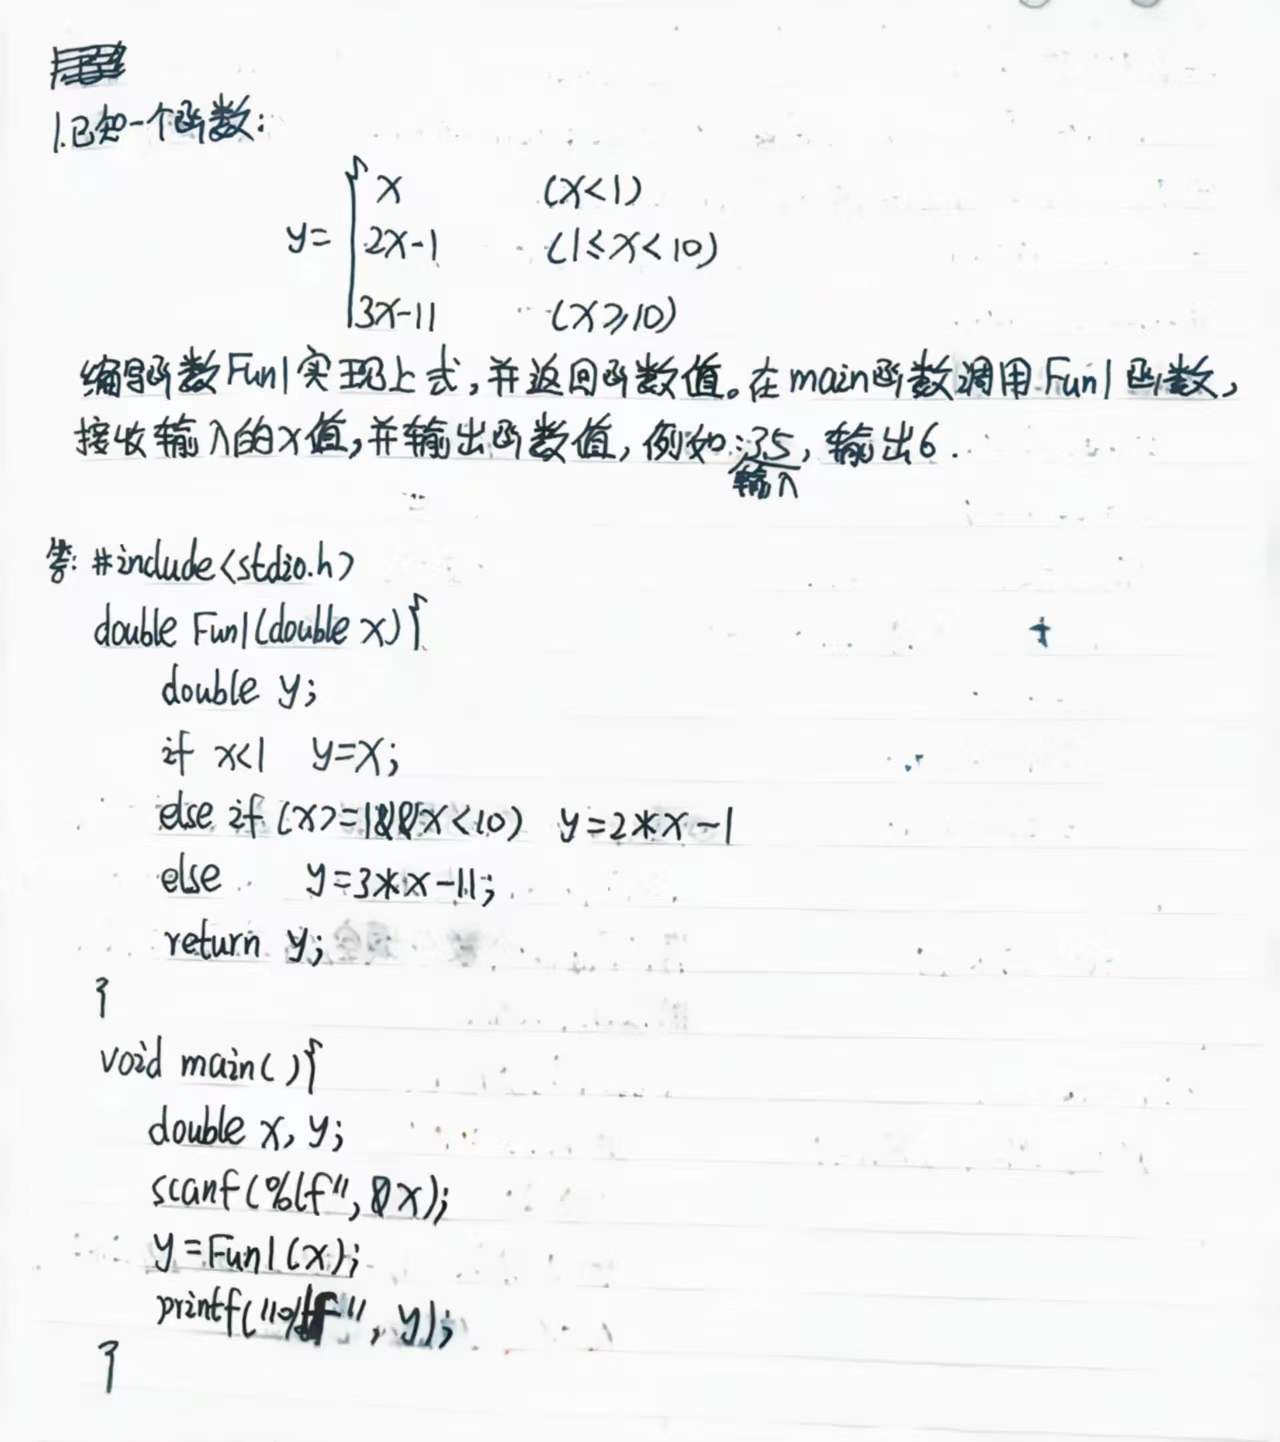 1.已知一个函数:
y= { x (x<1)
2x-1 (1≤x<10)
3x-11 (x≥10)
编写函数Fun1实现上式,并返回函数值。在main函数调用Fun1函数,
接收输入的x值,并输出函数值,例如:3.5,输出6.
输入
答: #include<stdio.h>
double Fun1(double x){
double y;
if x<1 y=x;
else if (x>=1&&x<10) y=2*x-1
else y=3*x-11;
return y;
}
void main(){
double x, y;
scanf(%lf", &x);
y=Fun1(x);
printf("%lf", y);
}